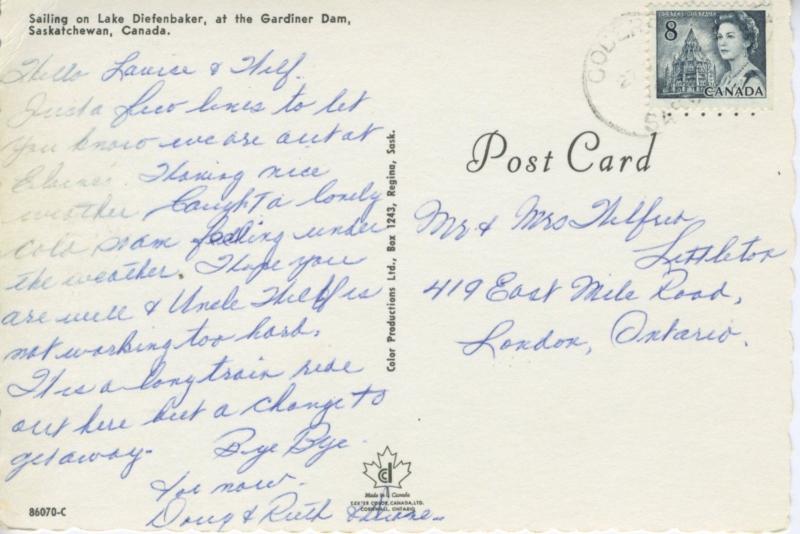 Sailing on Lake Diefenbaker, at the Gardiner Dam,
Saskatchewan, Canada.
Hello Laurie & Wilf.
Just a few lines to let
you know we are out at
Elaine's Having nice
weather Caught a lovely
cold so am feeling under
the weather. Hope you
are well & Uncle Wilf is
not working too hard.
It is a long train ride
out here but a change to
get away. Bye Bye.
for now.
Doug & Ruth
86070-C
Color Productions Ltd., Box 1243, Regina, Sask.
Made in Canada
CENTER COLOR, CANADA, LTD.
CORNWALL, ONTARIO
8
CANADA
SASK
Post Card
Mr & Mrs Wilfred
Littleton
419 East Mile Road,
London, Ontario.